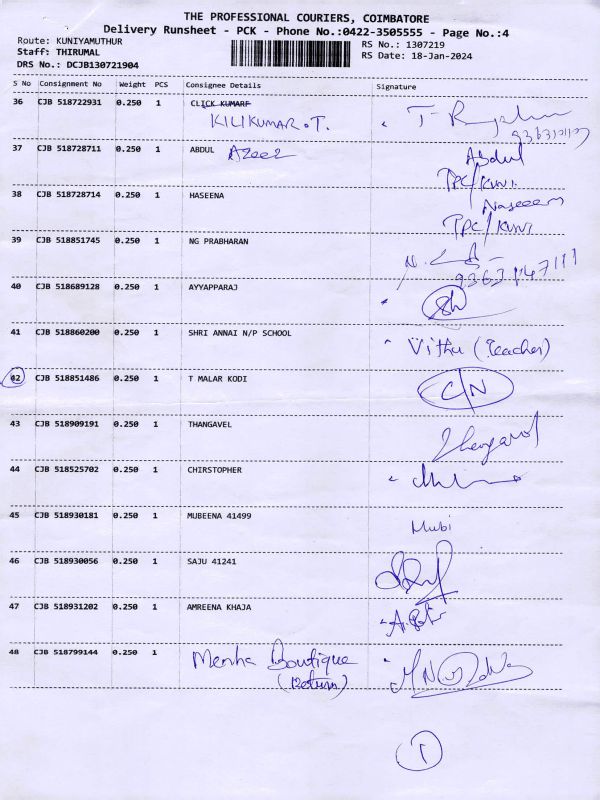 THE PROFESSIONAL COURIERS, COIMBATORE
Delivery Runsheet - PCK - Phone No.:0422-3505555 - Page No.:4
Route: KUNIYAMUTHUR
RS No.: 1307219
Staff: THIRUMAL
RS Date: 18-Jan-2024
DRS No.: DCJB130721904
S No Consignment No Weight PCS Consignee Details Signature
36 CJB 518722931 0.250 1 CLICK KUMARF
KILIKUMAR.T.
37 CJB 518728711 0.250 1 ABDUL Azeez Abdul
TPC/KUNI.
38 CJB 518728714 0.250 1 HASEENA Naseeem
TPC/KUNI
39 CJB 518851745 0.250 1 NG PRABHARAN
40 CJB 518689128 0.250 1 AYYAPPARAJ
41 CJB 518860200 0.250 1 SHRI ANNAI N/P SCHOOL Vithu (Teacher)
42 CJB 518851486 0.250 1 T MALAR KODI C/N
43 CJB 518909191 0.250 1 THANGAVEL
44 CJB 518525702 0.250 1 CHIRSTOPHER
45 CJB 518930181 0.250 1 MUBEENA 41499 Mubi
46 CJB 518930056 0.250 1 SAJU 41241
47 CJB 518931202 0.250 1 AMREENA KHAJA
48 CJB 518799144 0.250 1 Menha Boutique
(Return)